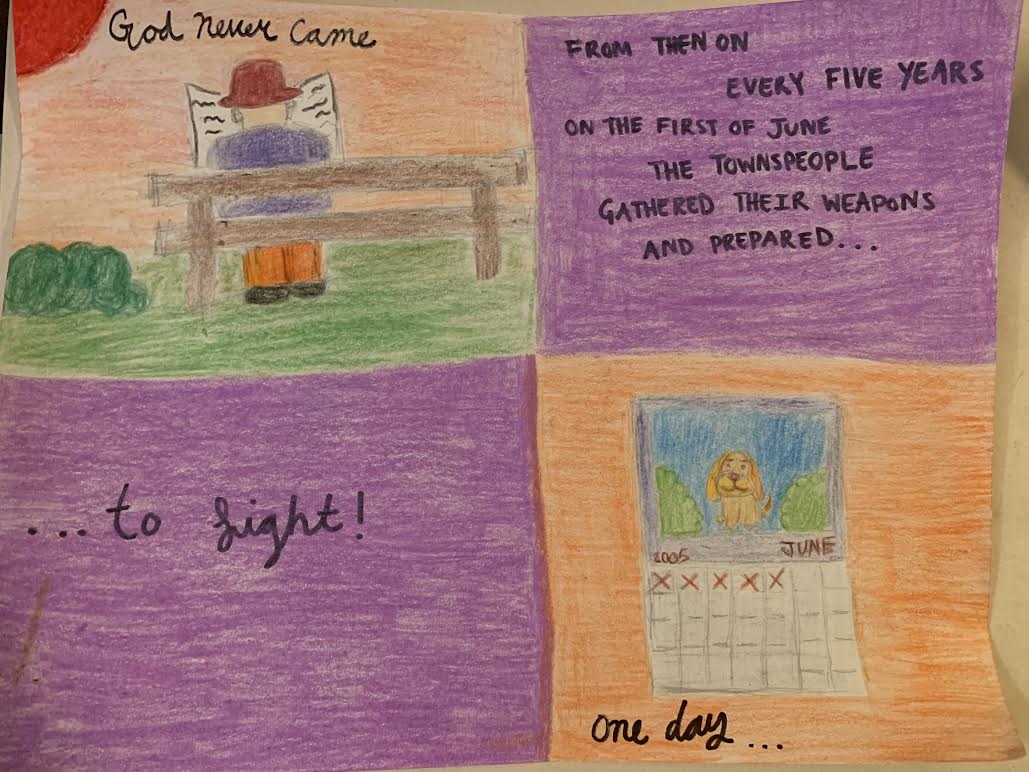 God never came
FROM THEN ON
EVERY FIVE YEARS
ON THE FIRST OF JUNE
THE TOWNSPEOPLE
GATHERED THEIR WEAPONS
AND PREPARED...
...to fight!
2005 JUNE
X X X X X
one day...